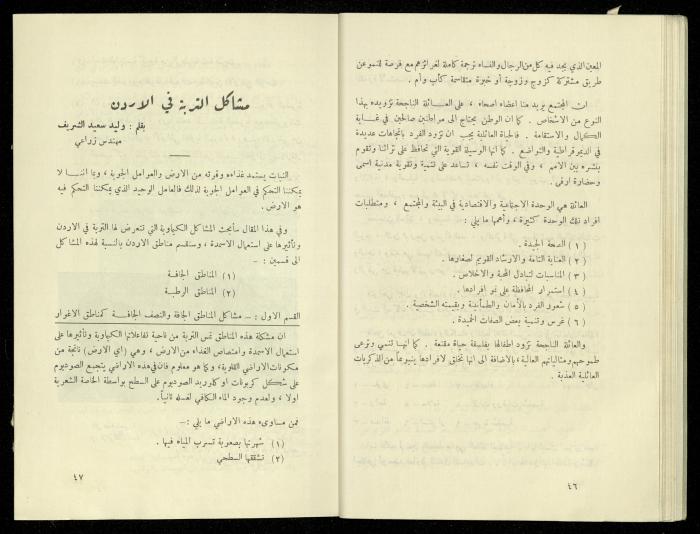 المعين الذي يجد فيه كل من الرجال والنساء ترجمة كاملة لغرائزهم مع فرصة للنمو عن
طريق مشتركة كزوج وزوجة أو خبرة متقاسمة كأب وأم .
ان المجتمع يريد هنا اعضاء اصحاء ، على العائلة الناجحة تزويده بهذا
النوع من الاشخاص . كما ان الوطن يحتاج الى مواطنين صالحين في غاية
الكمال والاستقامة . فالحياة العائلية يجب ان تزود الفرد باتجاهات عديدة
في الديموقراطية والتواضع . كما انها الوسيلة القوية التي تحافظ على تراثنا وتقوم
بنشره بين الامم ، وفي الوقت نفسه ، تساعد على تنمية وتقوية مدنية اسمى
وحضارة ارقى .
العائلة هي الوحدة الاجتماعية والاقتصادية في البيئة والمجتمع ، ومتطلبات
افراد تلك الوحدة كثيرة ، وأهمها ما يلي :
( ١ ) الصحة الجيدة .
( ٢ ) العناية التامة والارشاد القويم لصغارها .
( ٣ ) المناسبات لتبادل المحبة والاخلاص .
( ٤ ) استمرار المحافظة على نمو افرادها .
( ٥ ) شعور الفرد بالأمان والطمأنينة وبقيمته الشخصية .
( ٦ ) غرس وتنمية بعض الصفات الحميدة .
والعائلة الناجحة تزود اطفالها بفلسفة حياة مقنعة . كما أنها تنمي وترعى
طموحهم ومثالياتهم العالية ، بالاضافة الى انها تخلق لافرادها ينبوعاً من الذكريات
العائلية العذبة .
٤٦
مشاكل التربة في الاردن
بقلم : وليد سعيد الشريف
مهندس زراعي
النبات يستمد غذاءه وقوته من الارض والعوامل الجوية ، وبما اننا لا
يمكننا التحكم في العوامل الجوية لذلك فالعامل الوحيد الذي يمكننا التحكم فيه
هو الارض .
وفي هذا المقال سأبحث المشاكل الكيماوية التي تتعرض لها التربة في الاردن
وتأثيرها على استعمال الاسمدة ، وسنقسم مناطق الاردن بالنسبة لهذه المشاكل
الى قسمين : –
( ١ ) المناطق الجافة
( ٢ ) المناطق الرطبة
القسم الاول : – مشاكل المناطق الجافة والنصف الجافة كمناطق الاغوار
ان مشكلة هذه المناطق تمس التربة من ناحية تفاعلاتها الكيماوية وتأثيرها على
استعمال الاسمدة وامتصاص الغذاء من الارض ، وهي ( اي الارض ) ناتجة من
مكونات الاراضي القلوية ، وكما هو معلوم فان في هذه الاراضي يتجمع الصوديوم
على شكل كربونات او كلوريد الصوديوم على السطح بواسطة الخاصة الشعرية
اولا ، ولعدم وجود الماء الكافي لغسله ثانياً .
فمن مساوىء هذه الاراضي ما يلي :–
( ١ ) شهرتها بصعوبة تسرب المياه فيها .
( ٢ ) تشققها السطحي
٤٧